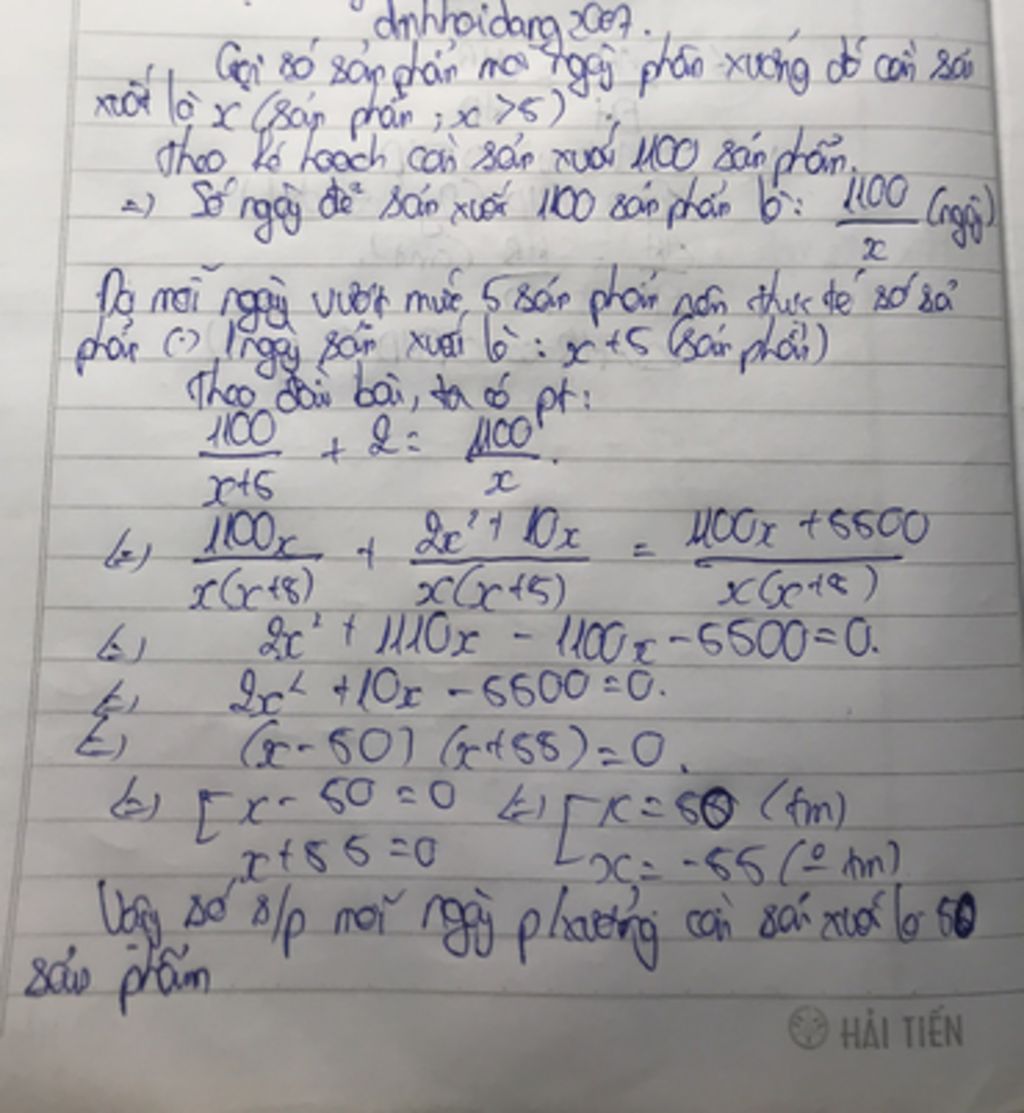 dnhhoidang2007.
Gọi số sản phẩm mỗi ngày phân xưởng đó cần sản
xuất là x (sản phẩm ; x > 5)
Theo kế hoạch cần sản xuất 1100 sản phẩm.
=> Số ngày để sản xuất 1100 sản phẩm là: 1100/x (ngày)
Do mỗi ngày vượt mức 5 sản phẩm nên thực tế số sả
phẩm (·) 1 ngày sản xuất là: x + 5 (sản phẩm)
Theo đầu bài, ta có pt:
1100/(x+5) + 2 = 1100/x.
(=) 1100x/x(x+5) + (2x² + 10x)/x(x+5) = (1100x + 5500)/x(x+5)
(=) 2x² + 1110x - 1100x - 5500 = 0.
(=) 2x² + 10x - 5500 = 0.
(=) (x - 50) (x + 55) = 0.
(=) [ x - 50 = 0 (=) [ x = 50 (tm)
x + 55 = 0 x = -55 (o tm)
Vậy số s/p mỗi ngày pxưởng cần sản xuất là 50
sản phẩm
HẢI TIẾN